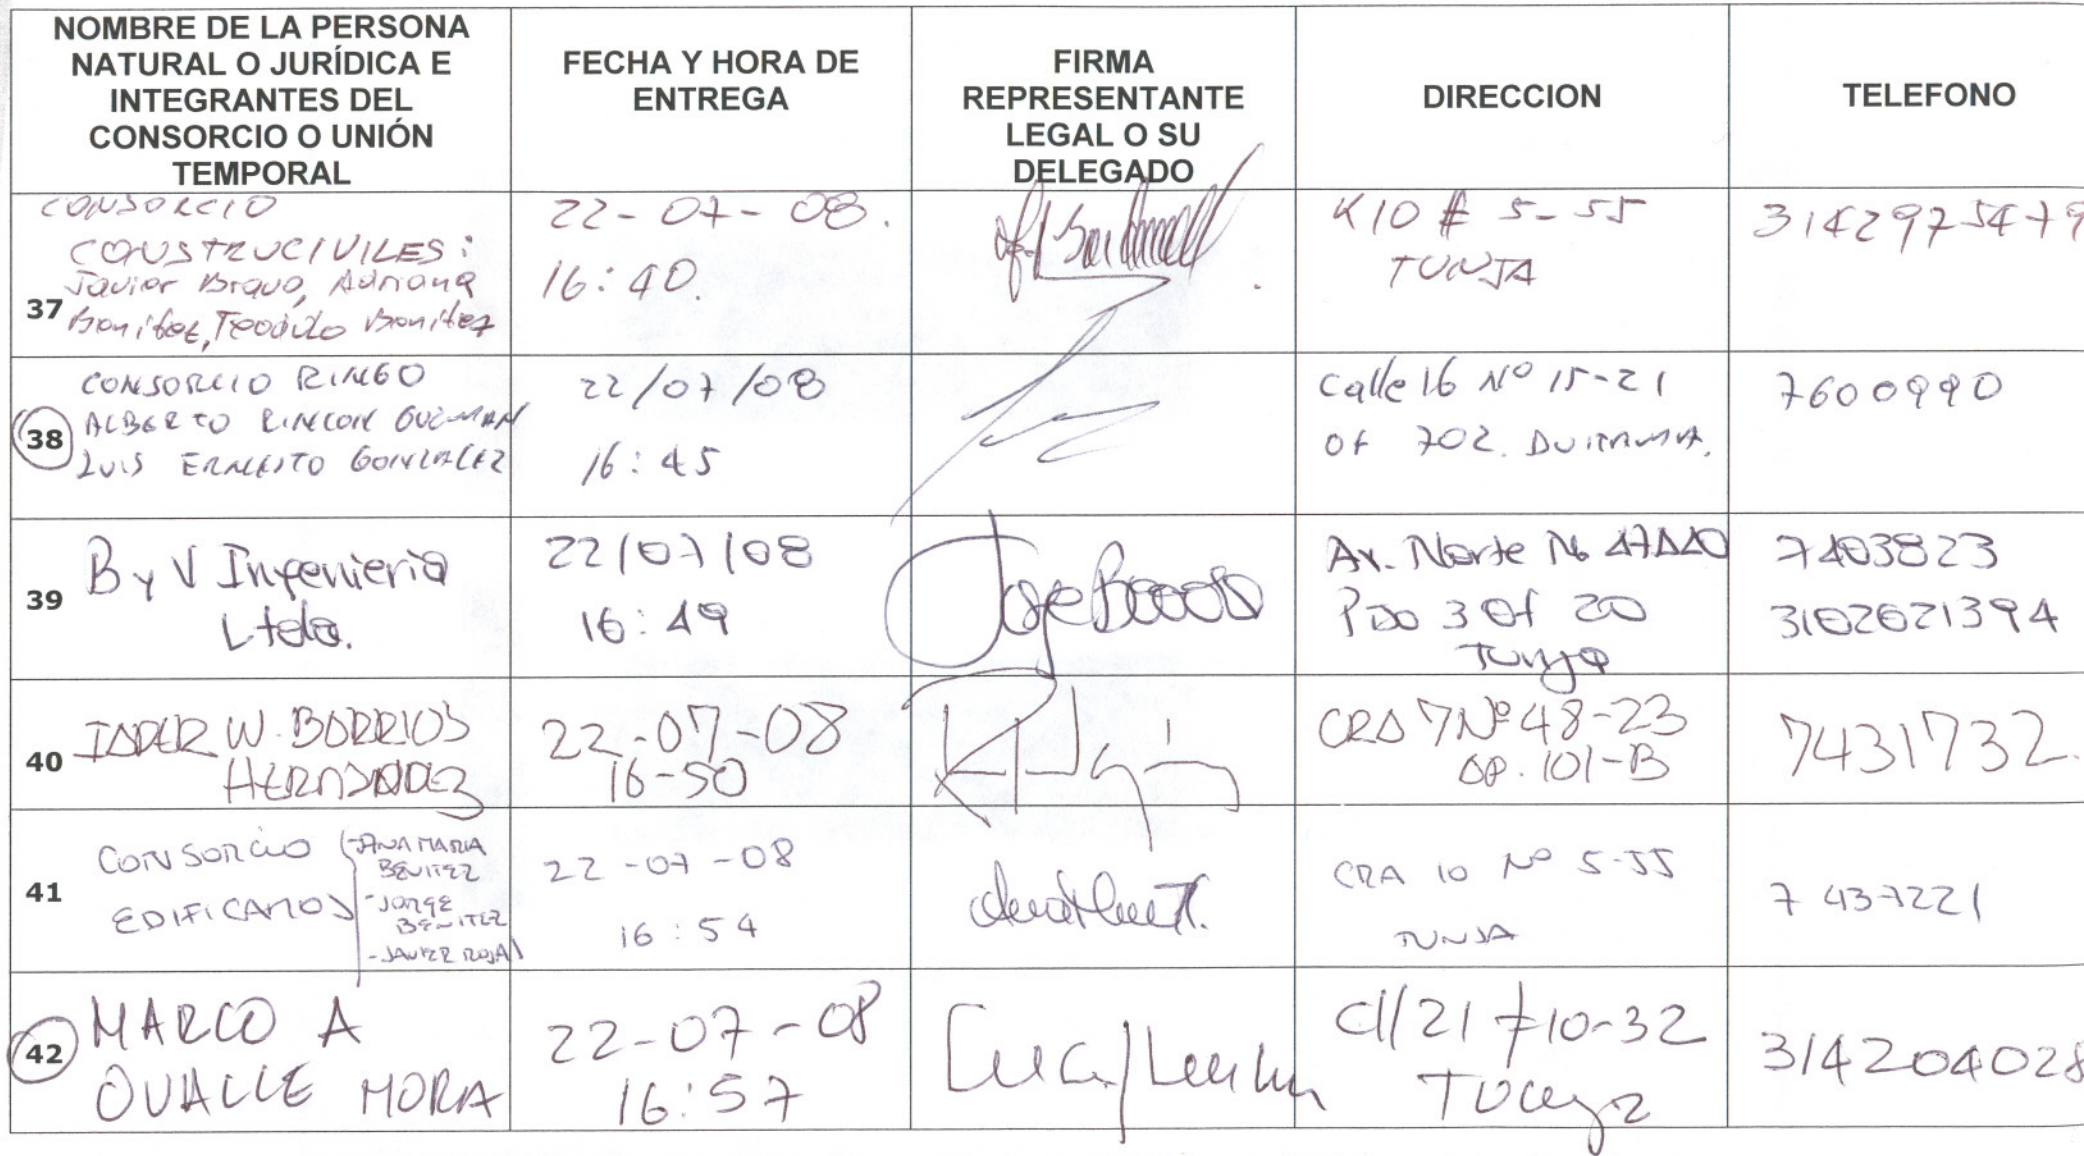 NOMBRE DE LA PERSONA
NATURAL O JURÍDICA E
INTEGRANTES DEL
CONSORCIO O UNIÓN
TEMPORAL
FECHA Y HORA DE
ENTREGA
FIRMA
REPRESENTANTE
LEGAL O SU
DELEGADO
DIRECCION
TELEFONO
37
CONSORCIO
CONSTRUCIVILES:
Javier Bravo, Adriana
Benitez, Teodulo Benitez
22-07-08.
16:40.
K10 # 5-55
TUNJA
3142975479
38
CONSORCIO RINGO
ALBERTO RINCON GUZMAN
LUIS ERNESTO GONZALEZ
22/07/08
16:45
Calle 16 Nº 15-21
Of 702. DUITAMA.
7600990
39
B y V Ingenieria
Ltda.
22/07/08
16:49
Av. Norte No 47A40
Piso 3 Of 20
Tunja
7403823
3102621394
40
W. BARRIOS
HERNANDEZ
22-07-08
16-50
CRA 7 Nº 48-23
AP. 101-B
7431732.
41
CONSORCIO
EDIFICAMOS
-ANA MARIA
BENITEZ
-JORGE
BENITEZ
-JAVIER ROJAS
22-07-08
16:54
CRA 10 Nº 5-55
TUNJA
7437221
42
MARCO A
OVALLE MORA
22-07-08
16:57
Cll 21 # 10-32
Tunja
314204028